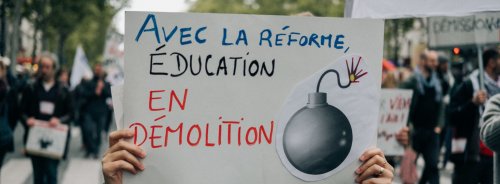 AVEC LA RÉFORME,
ÉDUCATION
EN
DÉMOLITION
DÉMISSION